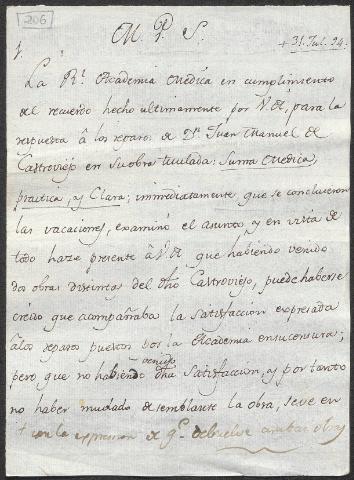 206
M. P. S.
+ 31 Jul. 94.
La Rl. Academia Medica en cumplimiento
del recuerdo hecho ultimamente por V.A. para la
respuesta â los reparos de Dn. Juan Manuel de
Castroviejo en su obra titulada: Suma Medica,
practica, y Clara; immediatamente que se concluieron
las vacaciones, examinó el asunto, y en vista de
todo haze presente â V.A. que habiendo venido
dos obras distintas del dho Castroviejo, puede haberse
creido que acompañaba la satisfaccion expresada
â los reparos puestos por la Academia en su censura;
venido
pero que no habiendo dha Satisfaccion, y por tanto
no haber mudado de semblante la obra, se ve en
+ con la expresion de qe. debuelve ambas obras